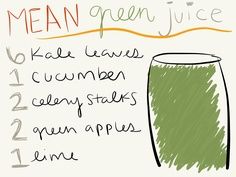 MEAN green juice
6 Kale leaves
1 cucumber
2 celery stalks
2 green apples
1 lime